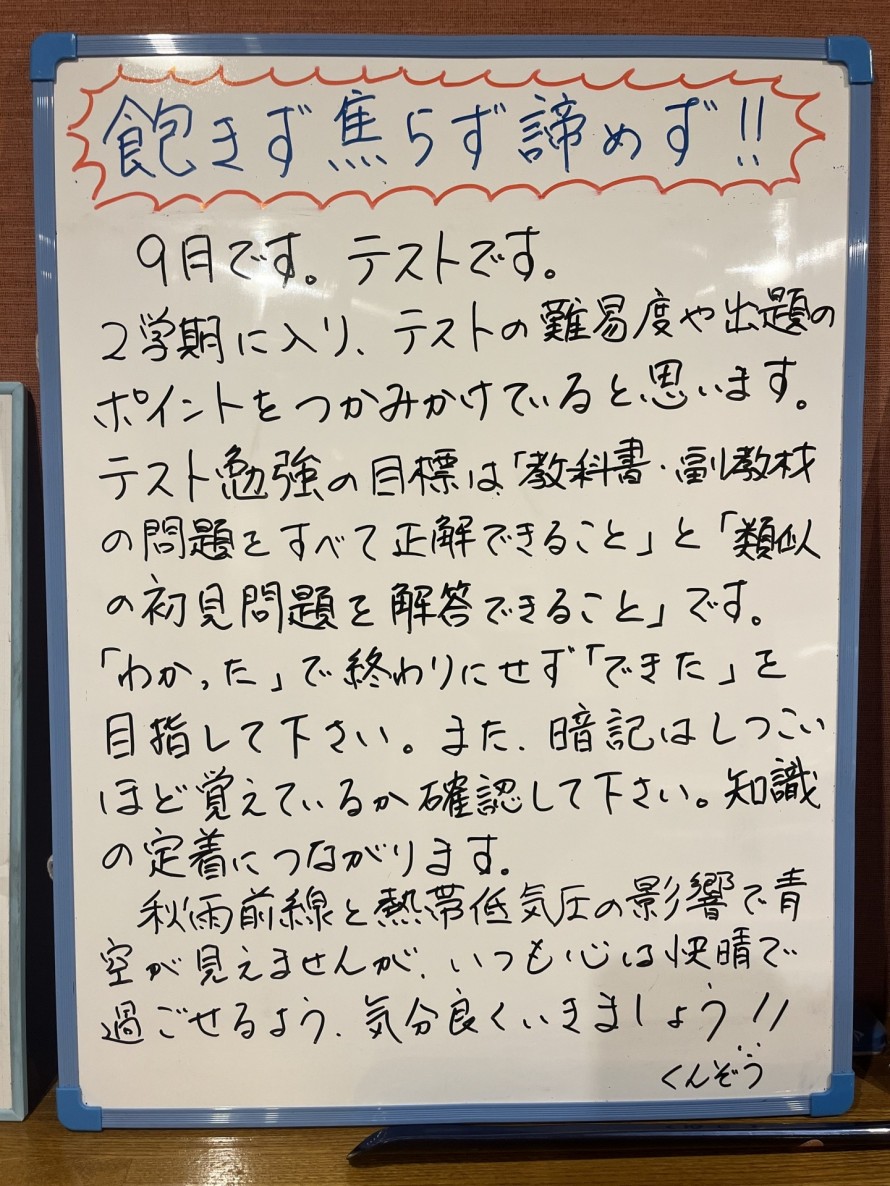 飽きず焦らず諦めず!!
9月です。テストです。
2学期に入り、テストの難易度や出題の
ポイントをつかみかけていると思います。
テスト勉強の目標は「教科書・副教材
の問題をすべて正解できること」と「類似
の初見問題を解答できること」です。
「わかった」で終わりにせず「できた」を
目指して下さい。また、暗記はしつこい
ほど覚えているか確認して下さい。知識
の定着につながります。
秋雨前線と熱帯低気圧の影響で青
空が見えませんが、いつも心は快晴で
過ごせるよう、気分良くいきましょう!!
くんぞう